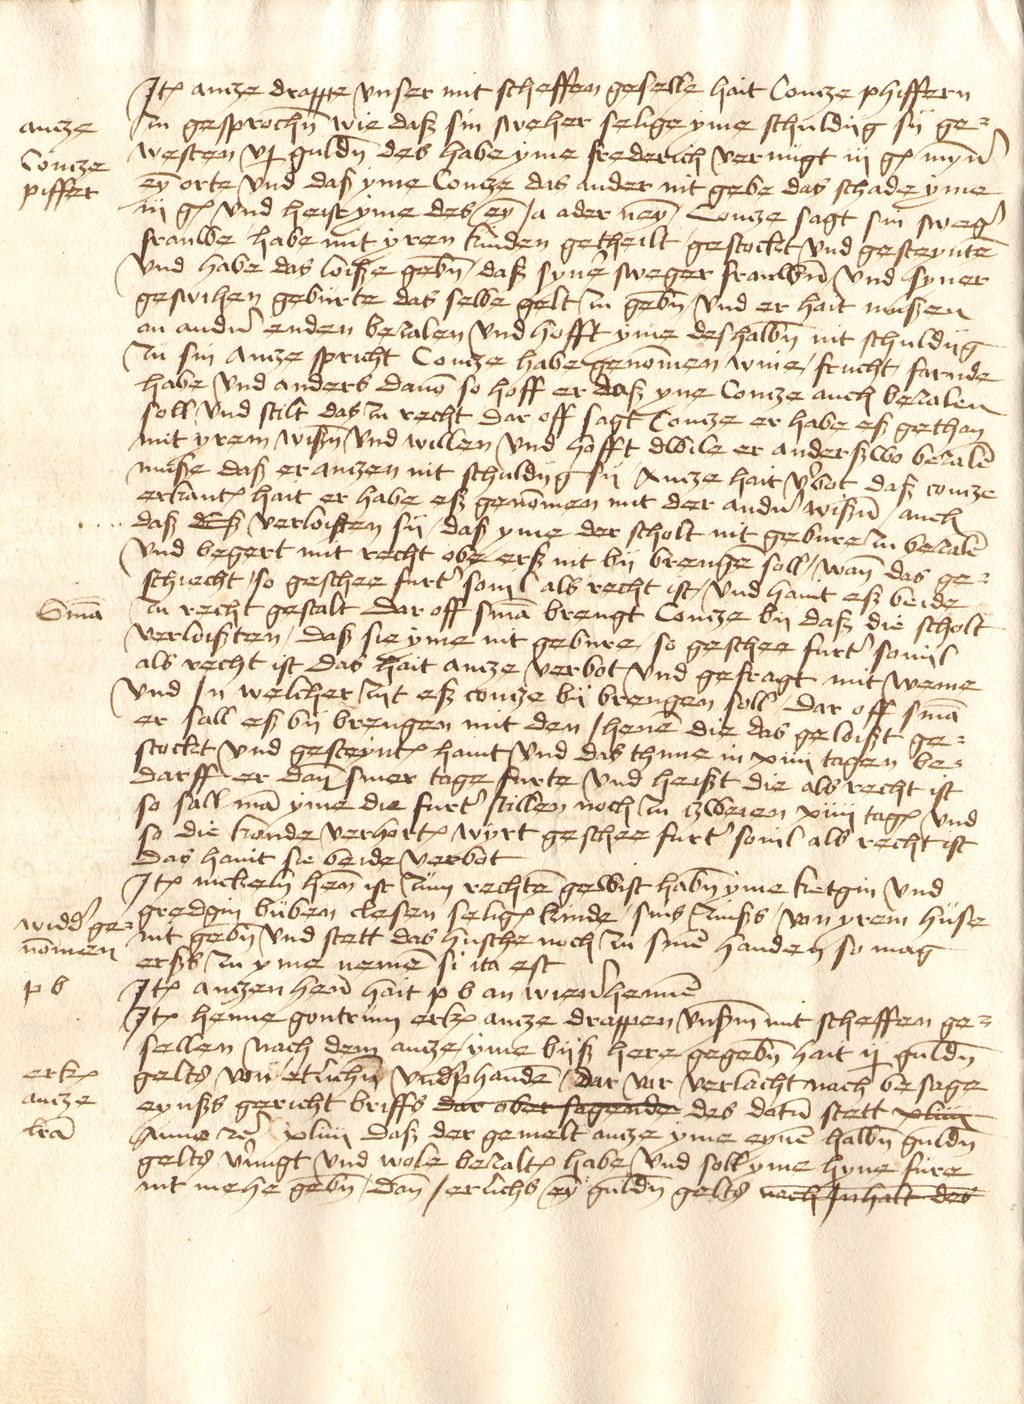 Jt(em) antze drappe vnser mit scheffen geselle hait Contze phiffern
antze
Contze
piffer
zu gesprochen wie daß sin sweher selige yme schuldig sij ge=
westen vj gulden des habe yme frederich vernügt iij g(ulden) myn(er)
ey(n) orte vnd daß yme Contze das ander nit gebe das schade yme
iij g(ulden) vnd heist yme des ey(n) ja ader ney(n) Contze sagt sin sweg(er)
frauwe habe mit yren kinden getheilt gestockt vnd gesteynt
vnd habe das loiße geben daß syner sweger frauwen vnd syner
geswihen geburte das selbe gelt zu geben vnd er hait mußen
an andern enden bezalen vnd hofft yme deßhalben nit schuldig
zu sin Antze spricht Contze habe genomen wine frucht farnde
habe vnd anders davon so hoff er daß yne Contze auch bezalen
soll vnd stilt das zu recht dar off sagt Contze er habe eß gethan
mit yrem wißen vnd willen vnd hofft dwile er anderßwo bezalen
muße daß er antzen nit schuldig sij Antze hait v(er)bot daß contze
erkant hait er habe eß genomen mit der andern wißen auch
daß verloisten sij daß yme der scholt nit gebure zu bezalen
vnd begert mit recht obe erß nit bij brenge(n) soll wan das ge=
schiecht so geschee furt(er) so vil als recht ist vnd hant eß beide
S(e)n(tenti)a
zu recht gestalt dar off s(e)n(tenti)a brengt Contze bij daß die scholt
verloißten daß sie yme nit gebure so geschee furt(er) so vil
als recht ist das hait antze verbot vnd gefragt mit weme
vnd in welcher zijt eß contze bij brengen soll dar off s(e)n(tenti)a
er sall eß bij brengen mit den jhenen die das geloißt ge=
stockt vnd gesteynt hant vnd das thune in xiiii tagen be=
darff er dan siner tage furte vnd heißt die als recht ist
so sall man yme die furt(er) stillen noch zu zweien xiiii tag(en) vnd
so die konde verhort wyrt geschee furt(er) so vil als recht ist
das hant sie beide verbot
Jt(em) nickeln hen(ne) ist zum rechten gewist haben yme ketgin vnd
gredgin buben clesen selig(en) kinde sins zinßs von yrem huse
widd(er) ge=
nomen
nit geben vnd stett das husche noch zu sinen handen so mag
erßs zu yme nemen si ita est
p b
Jt(em) antzen hen(ne) hait p b an wiener hennen
Jt(em) henne gontrum erk(ennt) antze drappen vnserm mit scheffen ge=
sellen nach dem antze yme biß here gegeben hait ij gulden
erk(ennt)
antze
tra(ppe)
gelts von etlichen vndphanden dar vor verlacht nach besage
eynßs gericht briffs dar ober sagende des datum stett xliiij
Anno ... xliiij daß der gemelt antze yme eynen halben gulden
gelts v(er)nugt vnd wole bezalt habe vnd soll yme hyne fure
nit mehe geben dan jerlichs ey(n) gulden gelts nach jnhalt des